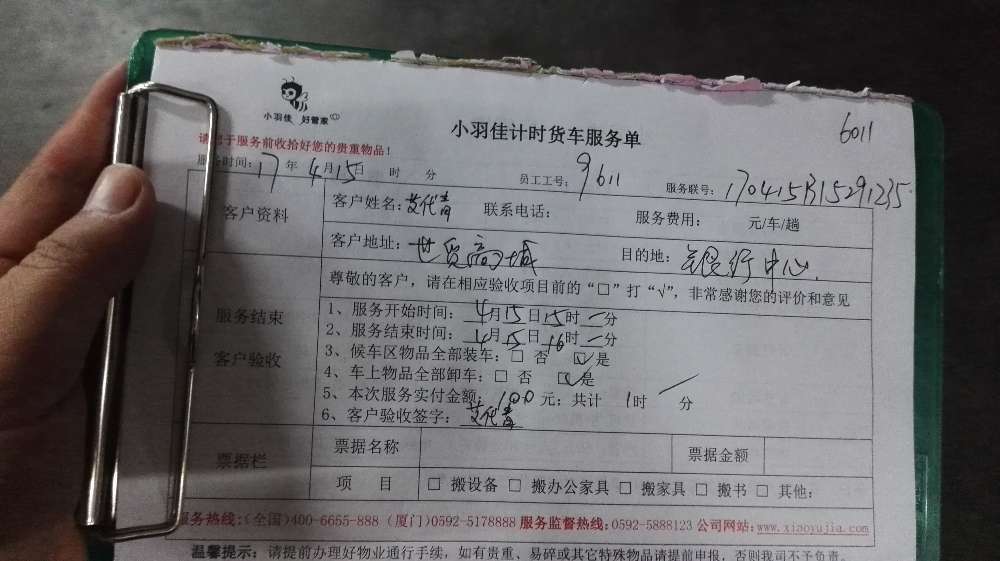 小羽佳 好管家
小羽佳计时货车服务单
6011
请您于服务前收拾好您的贵重物品！
服务时间：17年4月15日 时 分 员工工号：9611 服务联号：170415B15291235
客户资料
客户姓名：艾代青 联系电话： 服务费用： 元/车/趟
客户地址：世贸商城 目的地：银行中心
尊敬的客户，请在相应验收项目前的“□”打“√”，非常感谢您的评价和意见
服务结束
客户验收
1、服务开始时间：4月15日15时 分
2、服务结束时间：4月15日16时 分
3、候车区物品全部装车：□ 否 ☑是
4、车上物品全部卸车：□ 否 ☑是
5、本次服务实付金额：100元；共计 1时 分
6、客户验收签字：艾代青
票据栏
票据名称 票据金额
项 目 □ 搬设备 □ 搬办公家具 □ 搬家具 □ 搬书 □ 其他：
服务热线：（全国）400-6655-888（厦门）0592-5178888 服务监督热线：0592-5888123 公司网站：www.xiaoyujia.com
温馨提示：请提前办理好物业通行手续，如有贵重、易碎或其它特殊物品请提前申报，否则我司不予负责。